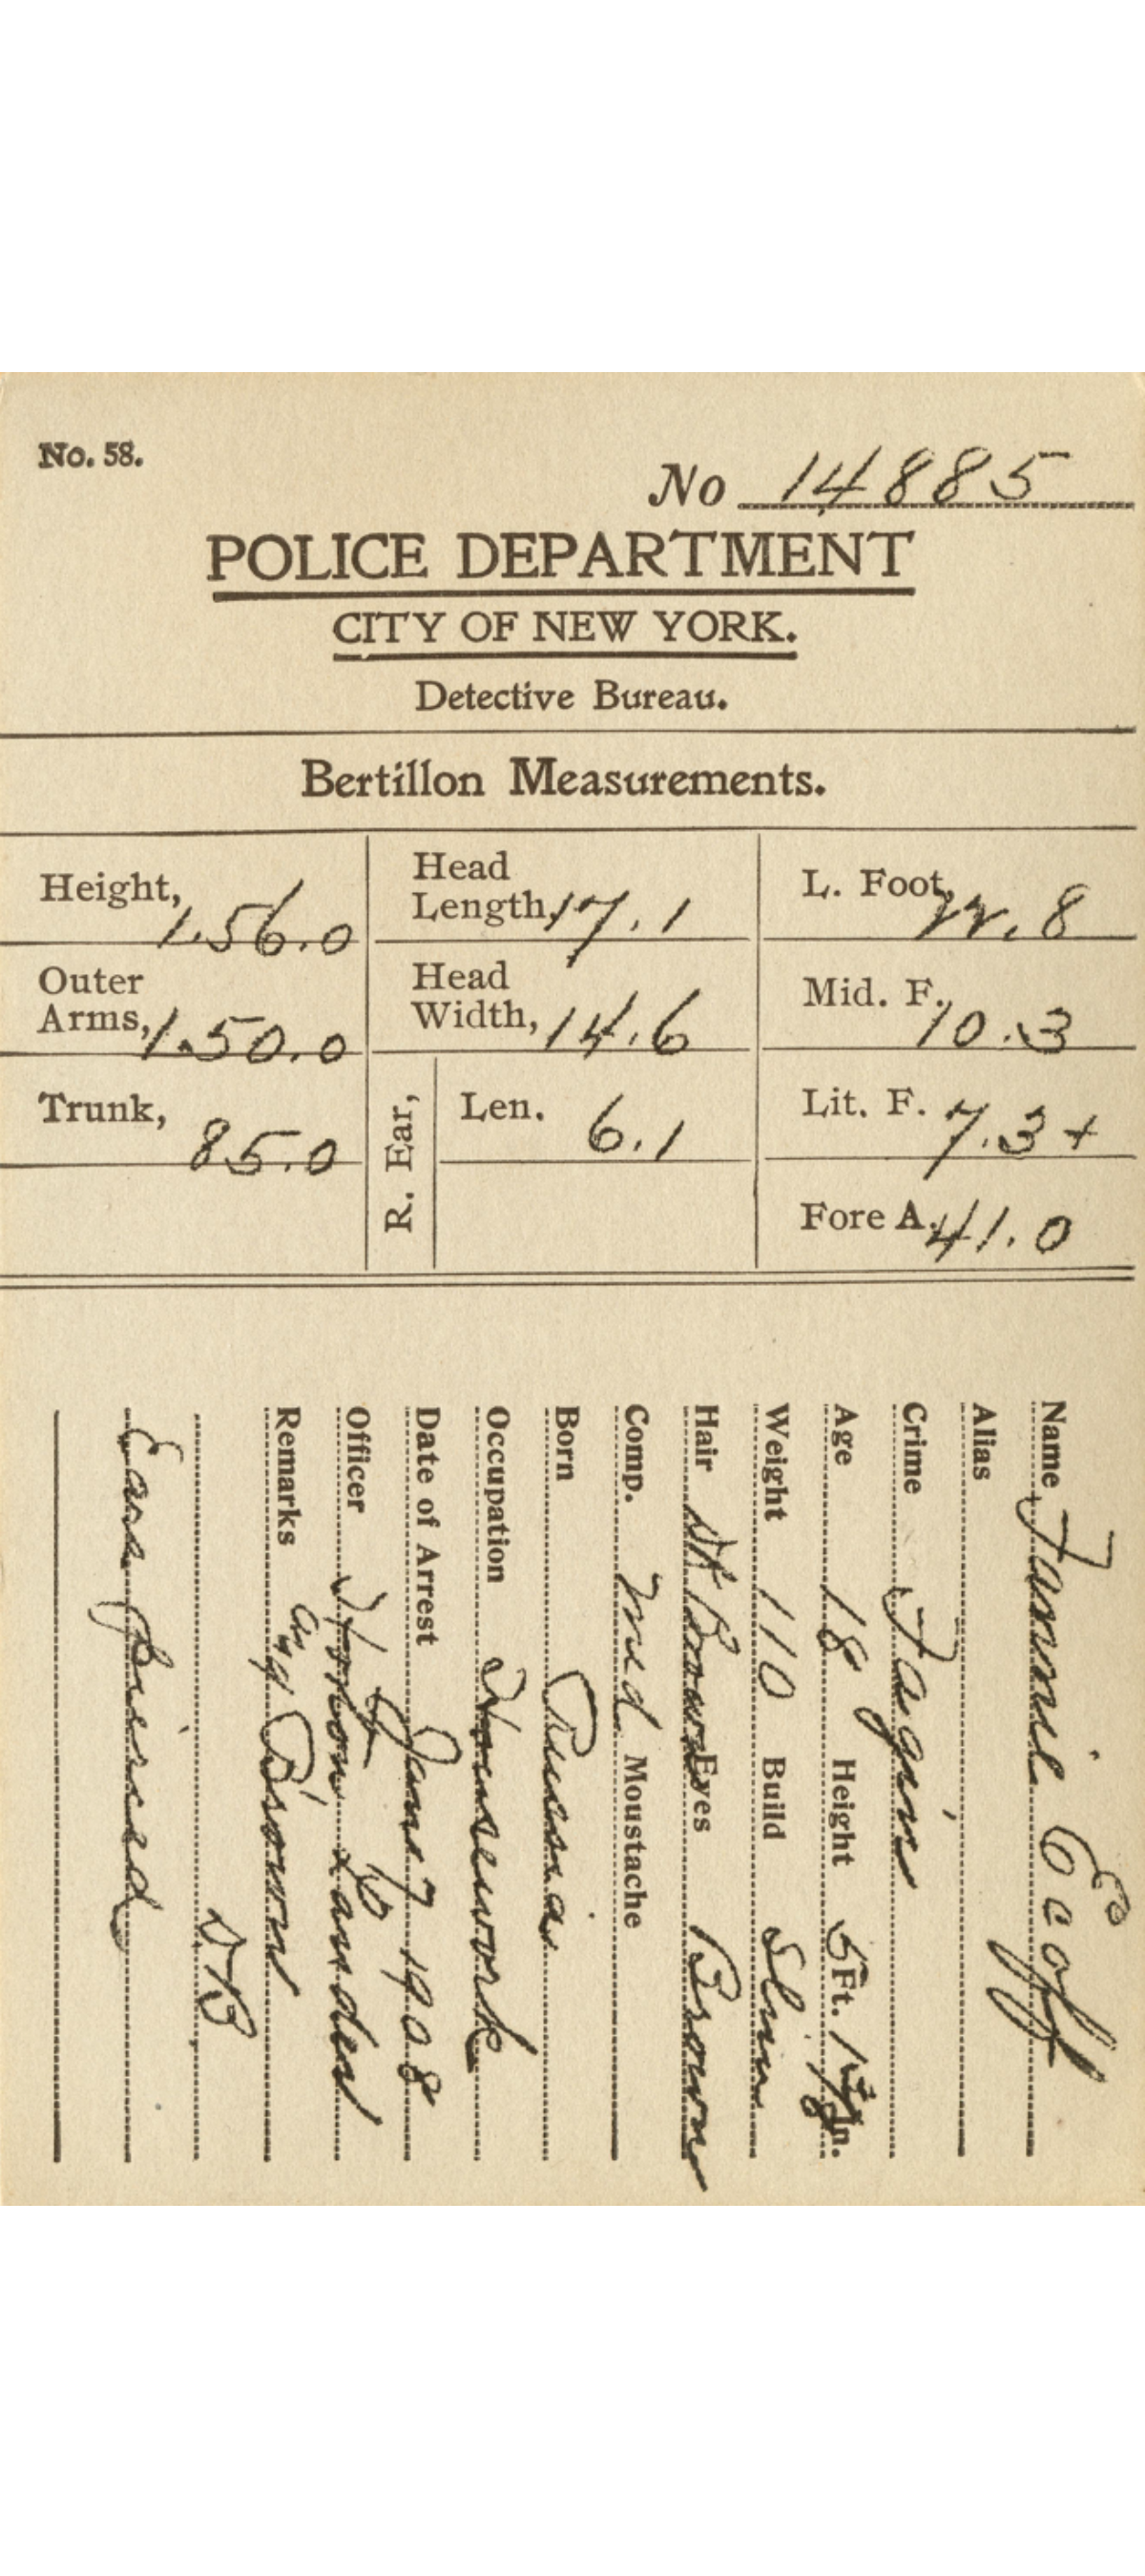 No. 58.
No 14885
POLICE DEPARTMENT
CITY OF NEW YORK.
Detective Bureau.
Bertillon Measurements.
Height, 1.56.0
Head Length, 17.1
L. Foot, 22.8
Outer Arms, 1.50.0
Head Width, 14.6
Mid. F. 10.3
Trunk, 85.0
R. Ear, Len. 6.1
Lit. F. 7.3+
Fore A. 41.0
Name Fannie Ecoff
Alias
Crime Fagin
Age 18 Height 5 Ft. 1 In.
Weight 110 Build Slim
Hair Dk Brown Eyes Brown
Comp. Med Moustache
Born Russia
Occupation Housework
Date of Arrest Jany 7 1908
Officer
Remarks Brown
DB
Ears pierced